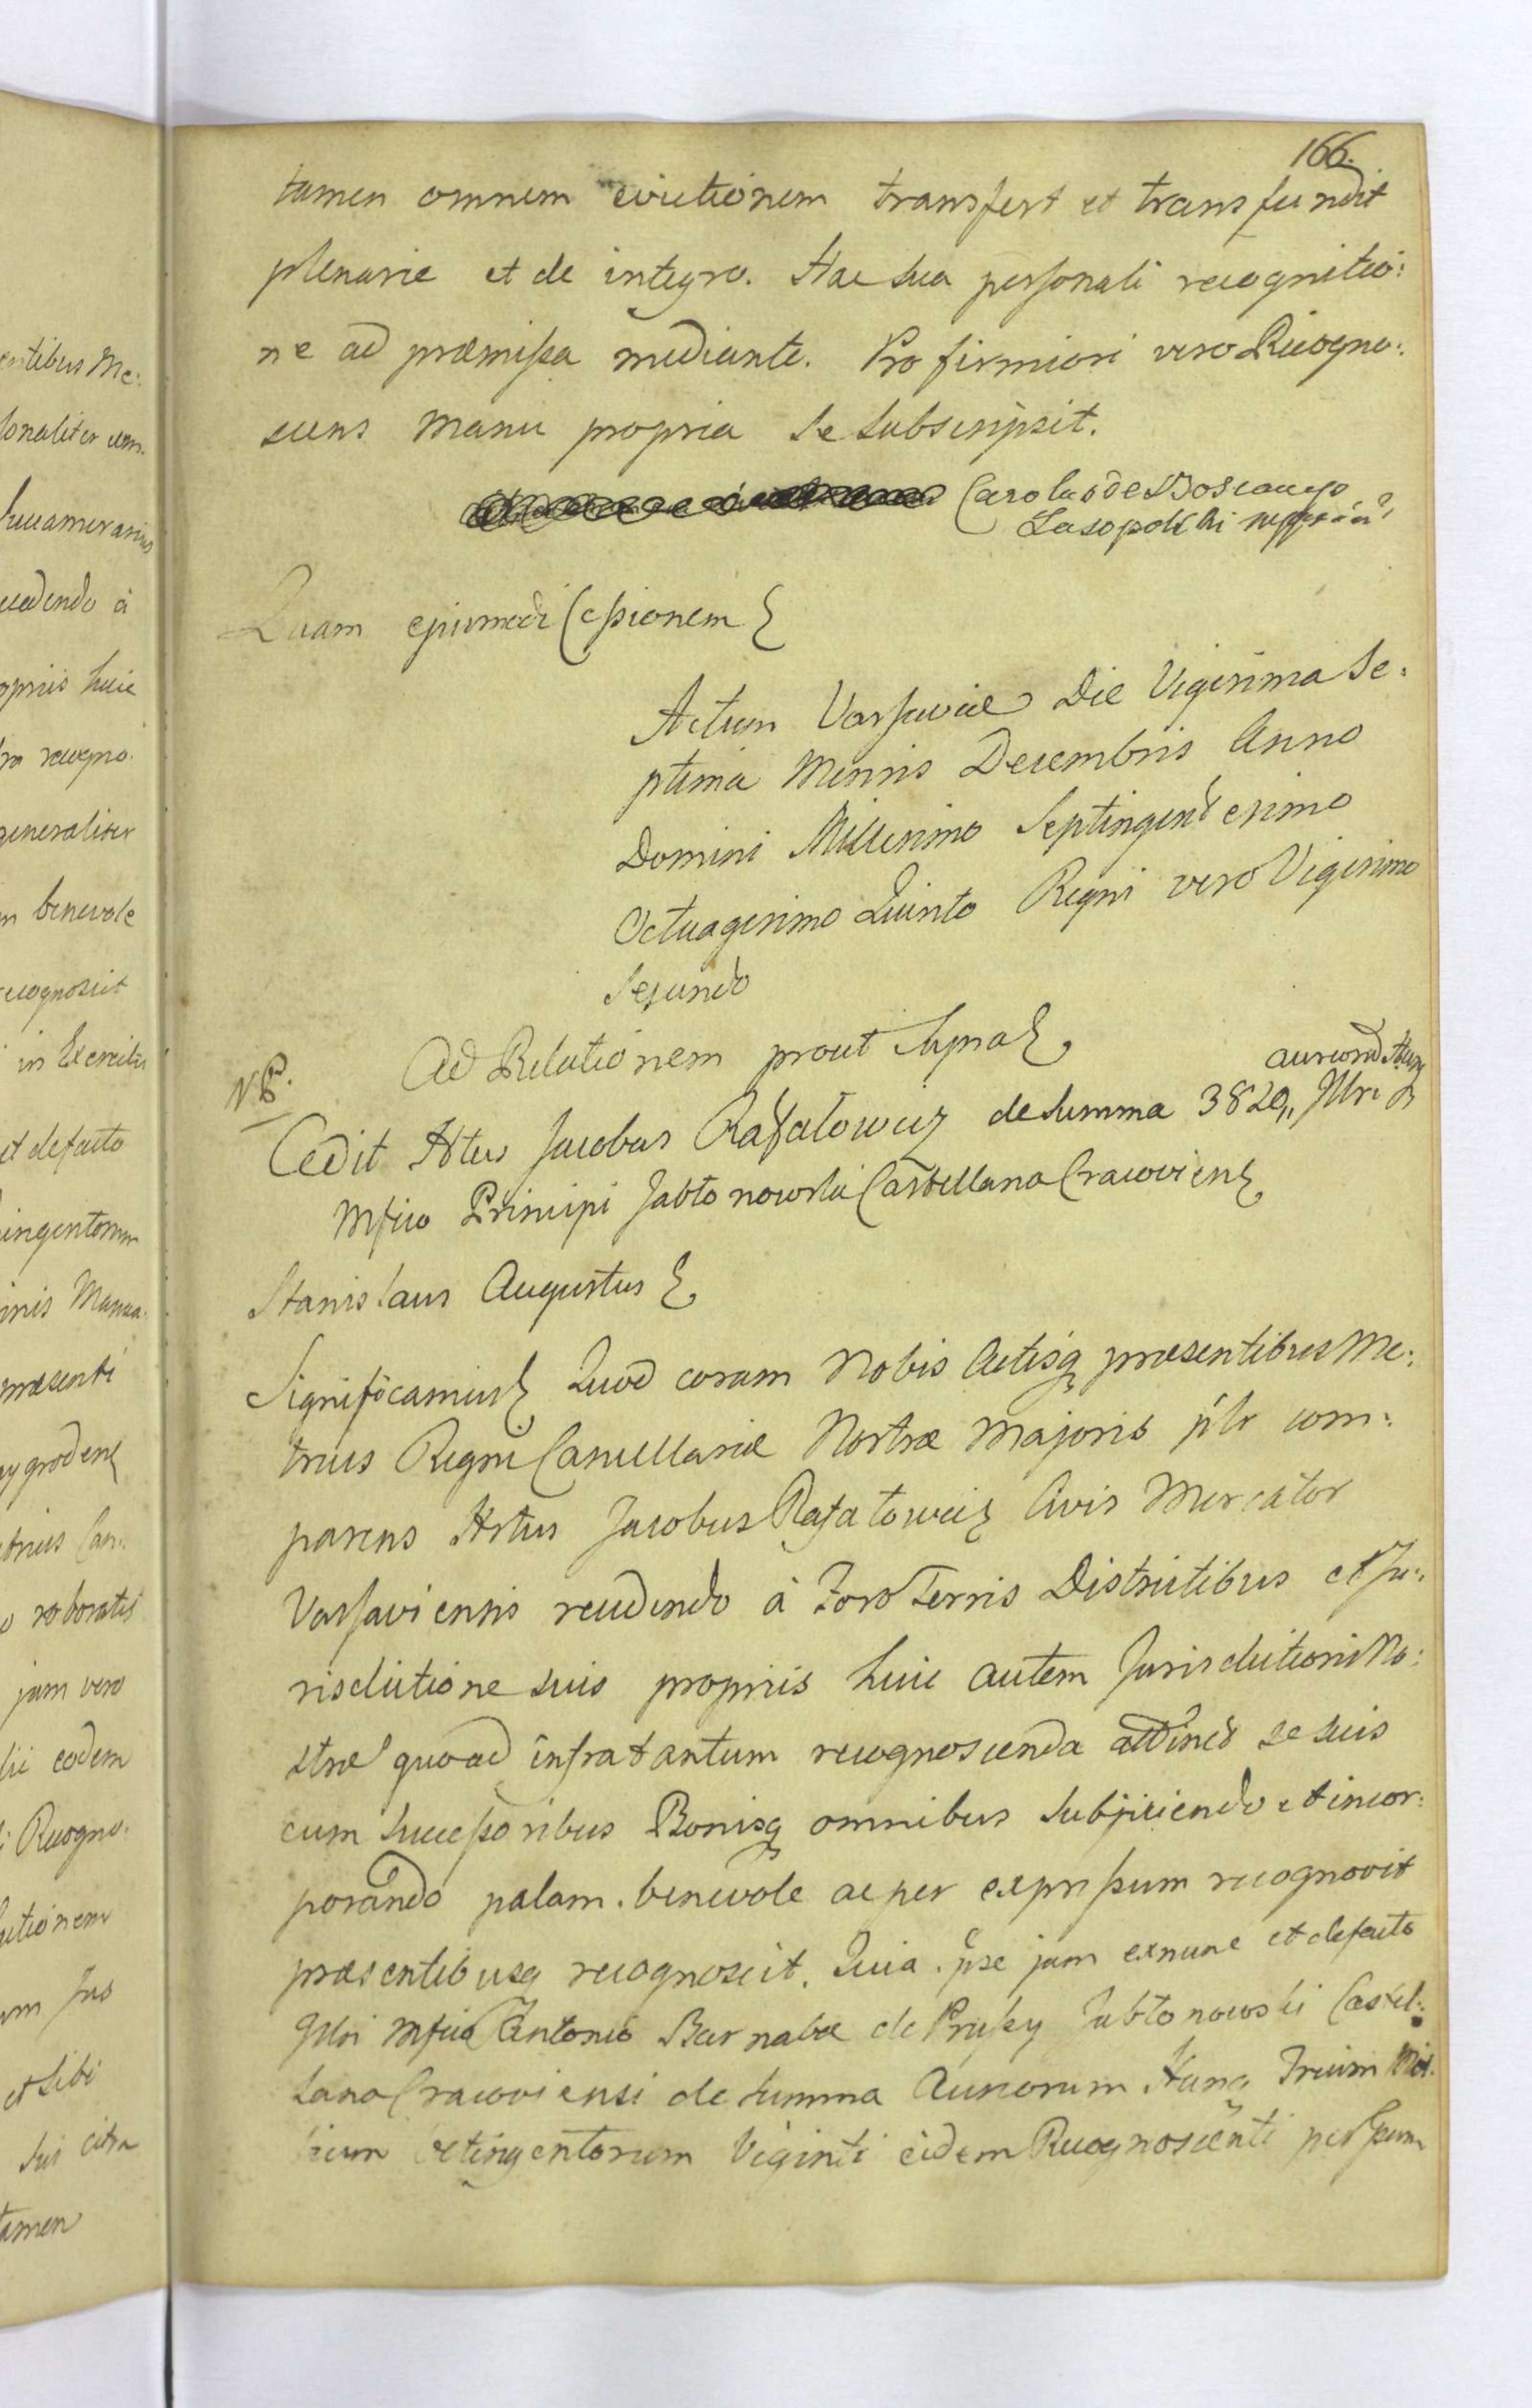 166.
tamen omnem evictionem transfert et transfundit
plenarie et de integro. Hac sua personali recognitio:
ne ad præmissa mediante. Pro firmiori vero Recogno:
scens manu propria se subscripsit.
Carolus de Boscamp
Lasopolski mpp
Quam ejusmodi Cessionem
Actum Varsaviæ Die Vigesima Se:
ptima Mensis Decembris Anno
Domini Millesimo Septingentesimo
Octuagesimo Quinto Regni vero Vigesimo
Secundo
Ad Relationem prout supra
NB.
aureorū Hung
Cedit Htus Jacobus Rafałowicz de summa 3820,, Illri
Mfico Principi Jabłonowski Castellano Cracovien
Stanislaus Augustus
Significamus Quod coram Nobis Actisq præsentibus Me:
trices Regni Cancellariæ Nostræ Majoris plr com:
parens Hstus Jacobus Rafałowicz Civis Mercator
Varsaviensis recedendo à Foro Terris Districtibus et Ju:
risdictione suis propriis huic autem Jurisdictioni No:
stræ quoad infra tantum recognoscenda attinet se suis
cum Successoribus Bonisq omnibus subjiciendo et incor:
porando palam benevole ac per expressum recognovit
præsentibusq recognoscit. Quia ipse jam exnunc et defacto
Illri Mfico Antonio Barnabæ de Prusy Jabłonowski Castel:
lano Cracoviensi de summa Aureorum Hung Trium Mil:
lium Octingentorum Viginti eidem Recognoscenti per
entibus Me:
sonaliter com
Succamerarius
recedendo à
opriis huic
recogno
generaliter
m benevole
recognoscit
in Exercitu
et defacto
ingentorum
præsenti
roboratis
jam vero
eodem
Recogno:
um Jus
et sibi
sui citra
tamen